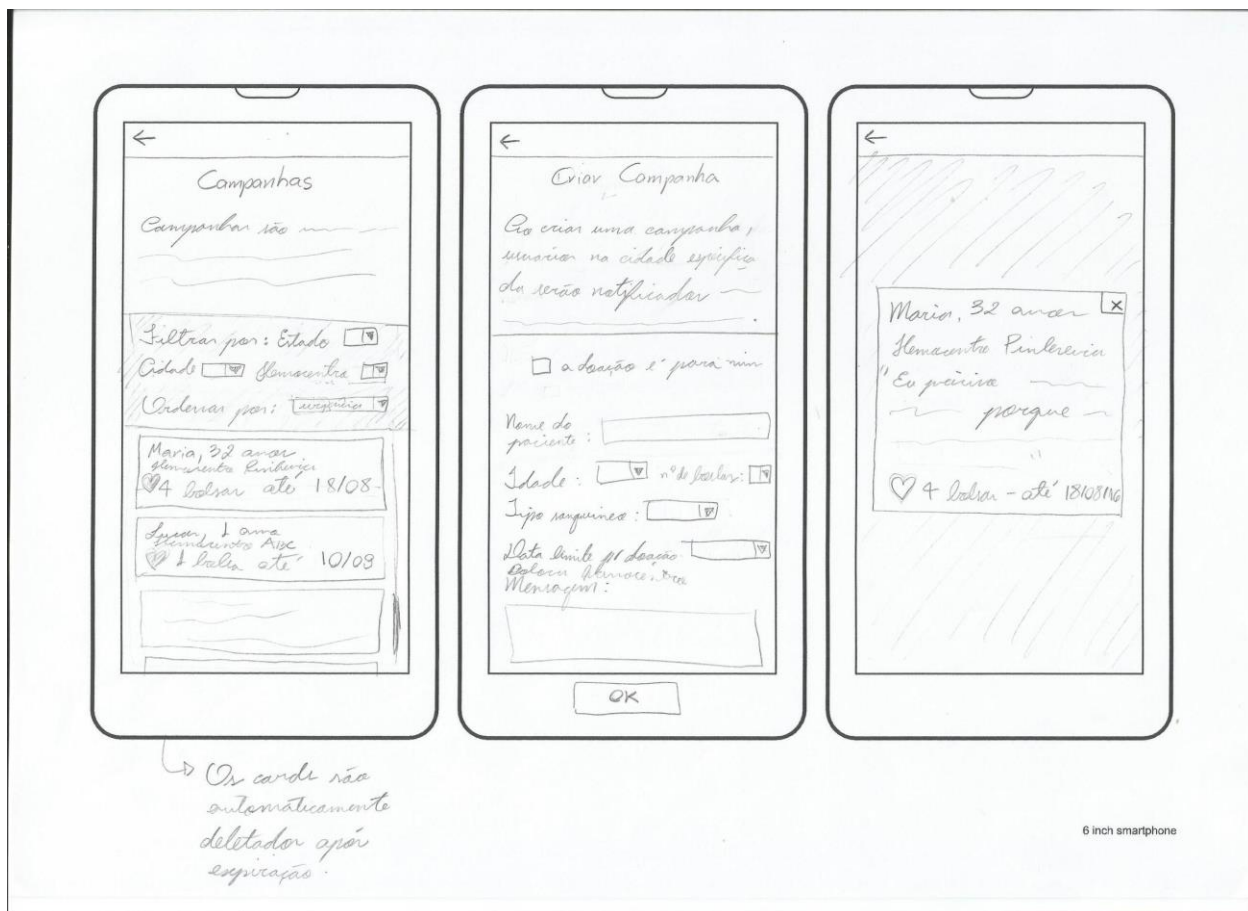 Campanhas
Campanhas são
Filtrar por: Estado
Cidade Hemocentro
Ordenar por: urgência
Maria, 32 anos
Hemocentro Pinheiros
4 bolsas até 18/08
Lucas, 1 ano
Hemocentro ABC
1 bolsa até 10/09
Os cards são
automaticamente
deletados após
expiração.
Criar Campanha
Ao criar uma campanha,
usuários na cidade específica
da serão notificados
a doação é para mim
Nome do
paciente:
Idade: nº de bolsas:
Tipo sanguíneo:
Data limite p/ doação
Hemocentro
Mensagem:
OK
Maria, 32 anos X
Hemocentro
"Eu preciso
porque
"
4 bolsas - até 18/08/16
6 inch smartphone